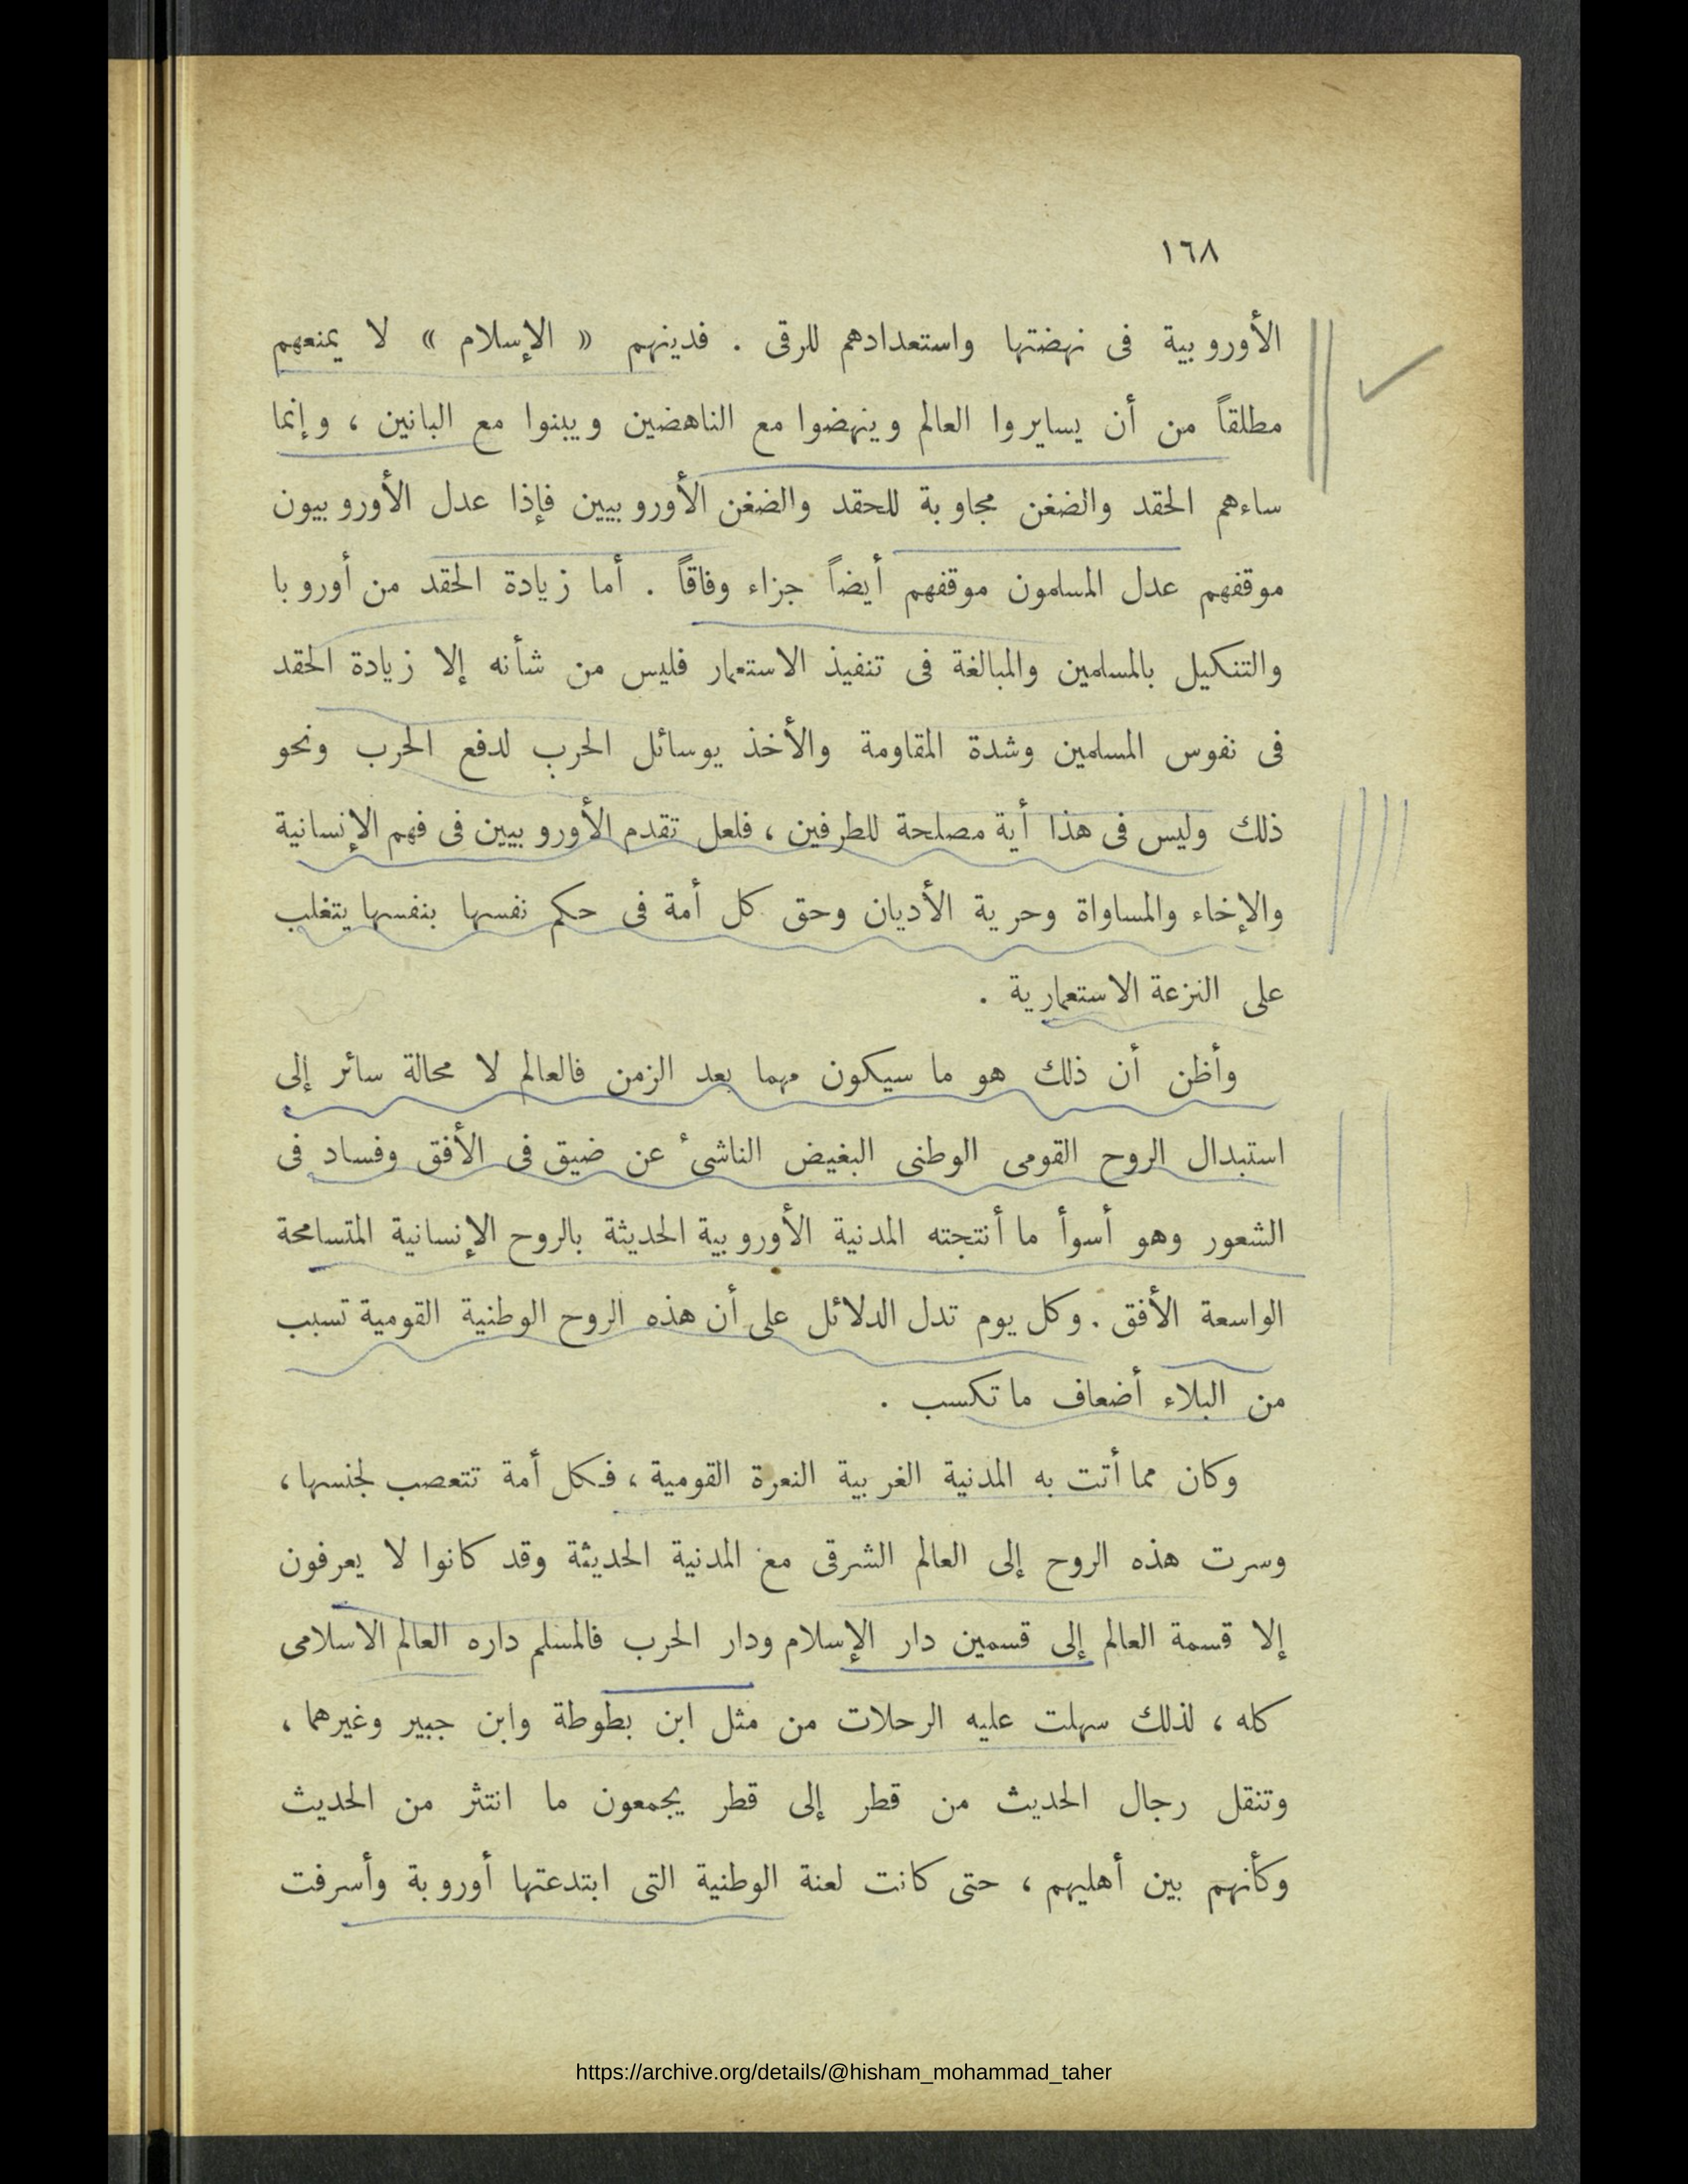 ١٦٨
الأوروبية فى نهضتها واستعدادهم للرقى . فدينهم « الإسلام » لا يمنعهم
مطلقاً من أن يسايروا العالم وينهضوا مع الناهضين ويبنوا مع البانين ، وإنما
ساءهم الحقد والضغن مجاوبة للحقد والضغن الأوروبيين فإذا عدل الأوروبيون
موقفهم عدل المسلمون موقفهم أيضاً جزاء وفاقاً . أما زيادة الحقد من أوروبا
والتنكيل بالمسلمين والمبالغة فى تنفيذ الاستعمار فليس من شأنه إلا زيادة الحقد
فى نفوس المسلمين وشدة المقاومة والأخذ بوسائل الحرب لدفع الحرب ونحو
ذلك وليس فى هذا أية مصلحة للطرفين ، فلعل تقدم الأوروبيين فى فهم الإنسانية
والإخاء والمساواة وحرية الأديان وحق كل أمة فى حكم نفسها بنفسها يتغلب
على النزعة الاستعمارية .
وأظن أن ذلك هو ما سيكون مهما بعد الزمن فالعالم لا محالة سائر إلى
استبدال الروح القومى الوطنى البغيض الناشئ عن ضيق فى الأفق وفساد فى
الشعور وهو أسوأ ما أنتجته المدنية الأوروبية الحديثة بالروح الإنسانية المتسامحة
الواسعة الأفق . وكل يوم تدل الدلائل على أن هذه الروح الوطنية القومية تسبب
من البلاء أضعاف ما تكسب .
وكان مما أتت به المدنية الغربية النعرة القومية ، فكل أمة تتعصب لجنسها ،
وسرت هذه الروح إلى العالم الشرقى مع المدنية الحديثة وقد كانوا لا يعرفون
إلا قسمة العالم إلى قسمين دار الإسلام ودار الحرب فالمسلم داره العالم الاسلامى
كله ، لذلك سهلت عليه الرحلات من مثل ابن بطوطة وابن جبير وغيرهما ،
وتنقل رجال الحديث من قطر إلى قطر يجمعون ما انتثر من الحديث
وكأنهم بين أهليهم ، حتى كانت لعنة الوطنية التى ابتدعتها أوروبة وأسرفت
https://archive.org/details/@hisham_mohammad_taher